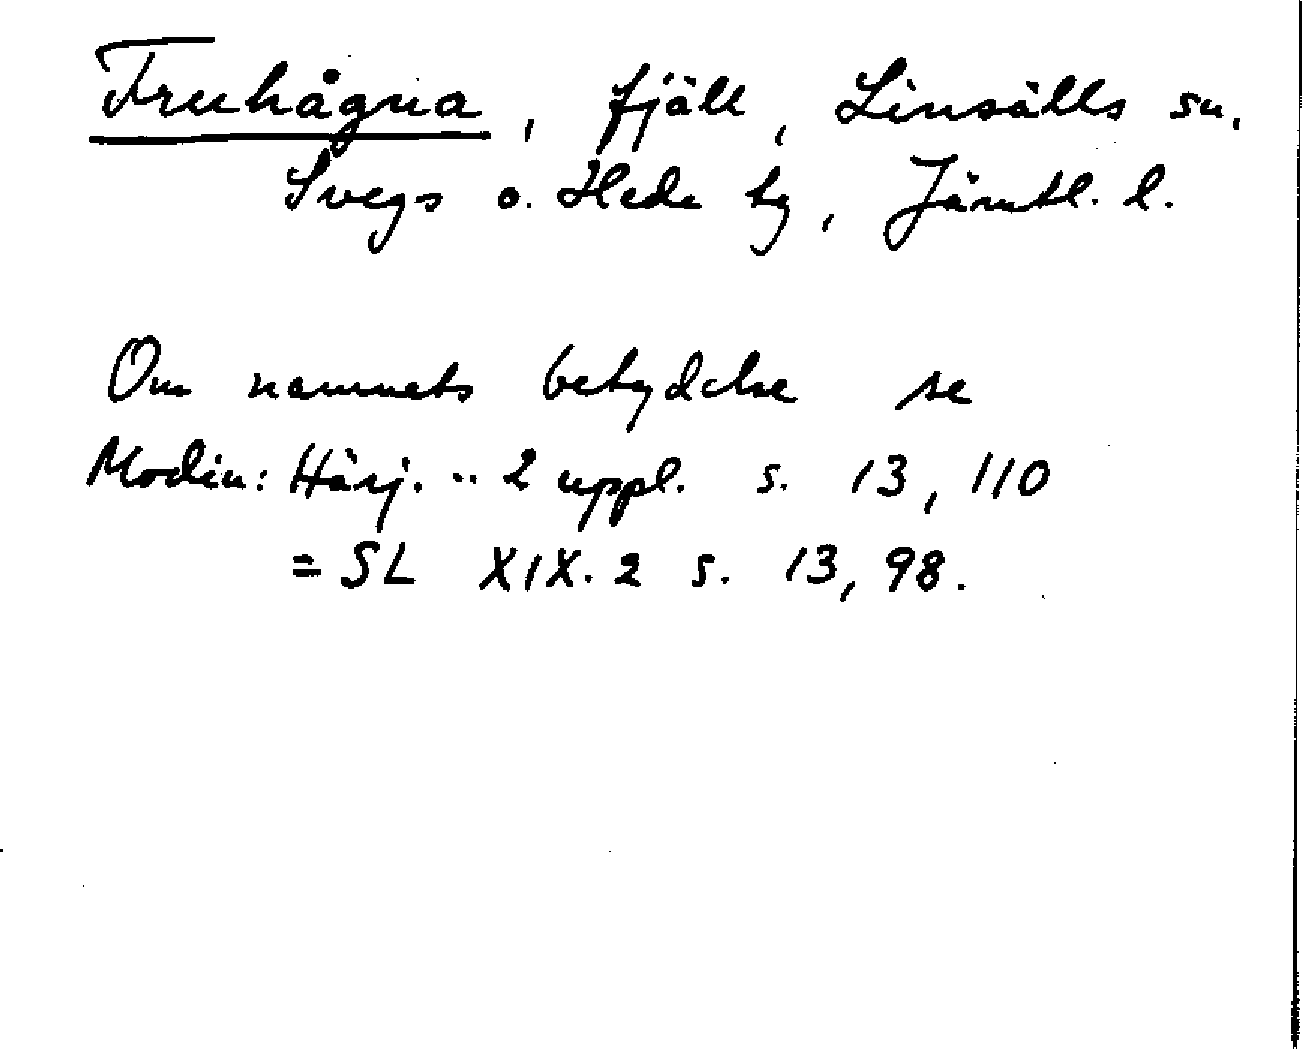 Fruhågna, fjäll, Linsälls sn.
Svegs o. Hede tg, Jämtl. l.
Om namnets betydelse se
Modin: Härj. .. 2 uppl. s. 13, 110
= SL XIX. 2 s. 13, 98.